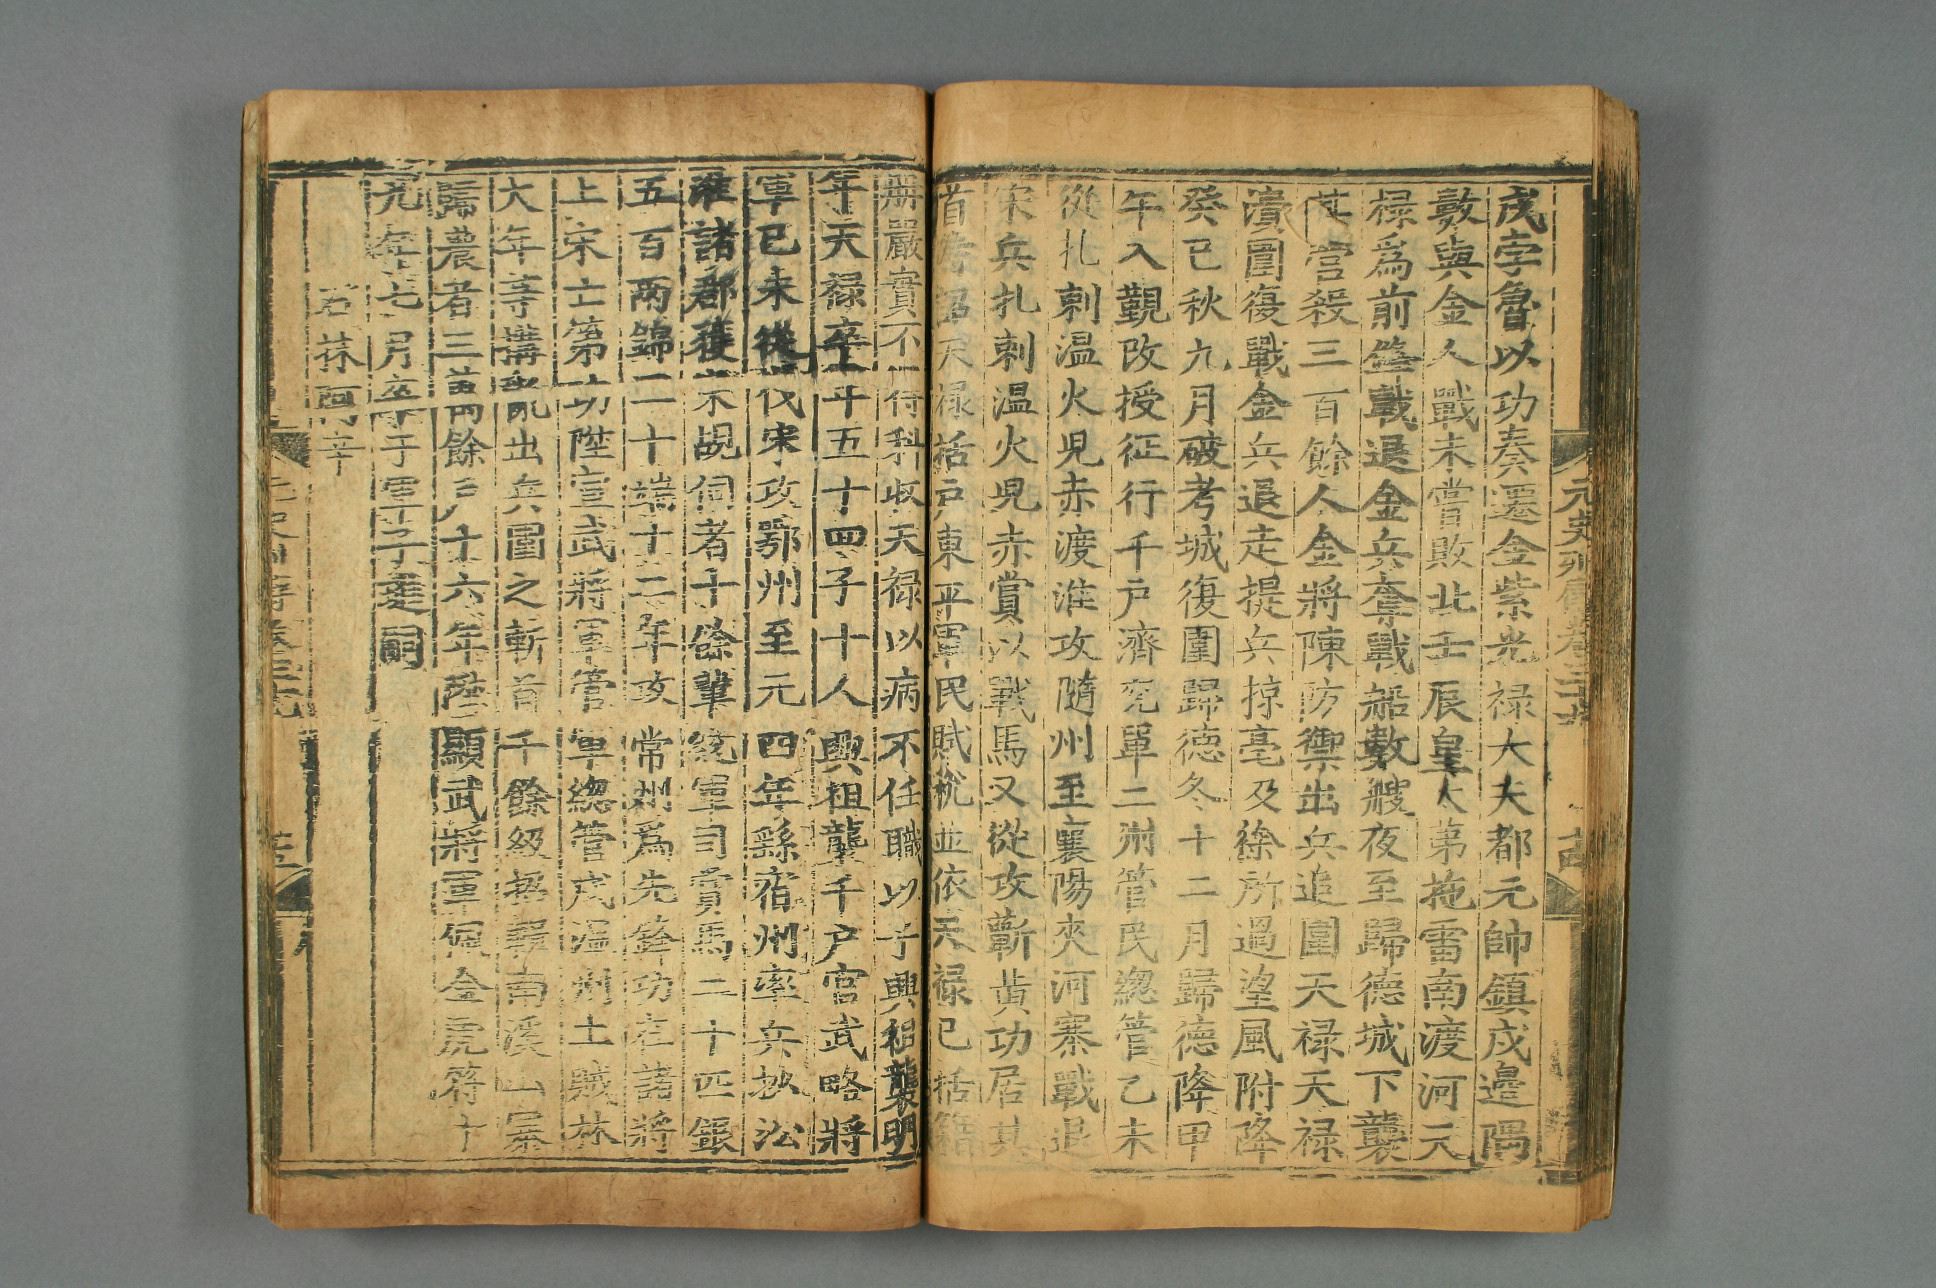 戌字魯以功奏遷金紫光禄大夫都元帥鎮戍邉隅
數與金人戰未嘗敗北壬辰皇太第拖雷南渡河天
禄爲前鋒戰退金兵奪戰船數艘夜至歸德城下襲
其營殺三百餘人金將陳防禦出兵追圍天禄天禄
潰圍復戰金兵退走提兵掠亳及徐所過望風附降
癸巳秋九月破考城復圍歸德冬十二月歸德降甲
午入覲改授征行千户濟兖單二州管民緫管乙未
從扎剌温火兒赤渡淮攻隨州至襄陽夾河寨戰退
宋兵扎剌温火兒赤賞以戰馬又從攻蘄黄功居其
首 詔天禄括户東平軍民賦稅並依天禄已括籍
册嚴實不 得科收天禄以病不任職以子興祖襲明
年天禄卒年五十四子十人興祖襲千户官武略將
軍己未從伐宋攻鄂州至元四年縣宿州率兵抄㳂
淮諸郡獲宋覘伺者十餘輩統軍司賞馬二十匹銀
五百兩錦二十端十二年攻常州爲先鋒功在諸將
上宋亡第功陞宣武將軍管軍緫管戍温州土賊林
大年等搆亂出兵圍之斬首千餘級 南溪山寨
歸農者三萬 餘户十六年陞顯武將軍佩金虎符十
元年七月卒于軍子 嗣
石抹阿辛
元史列傳卷三十九
十五
元史列傳卷三十九
十四